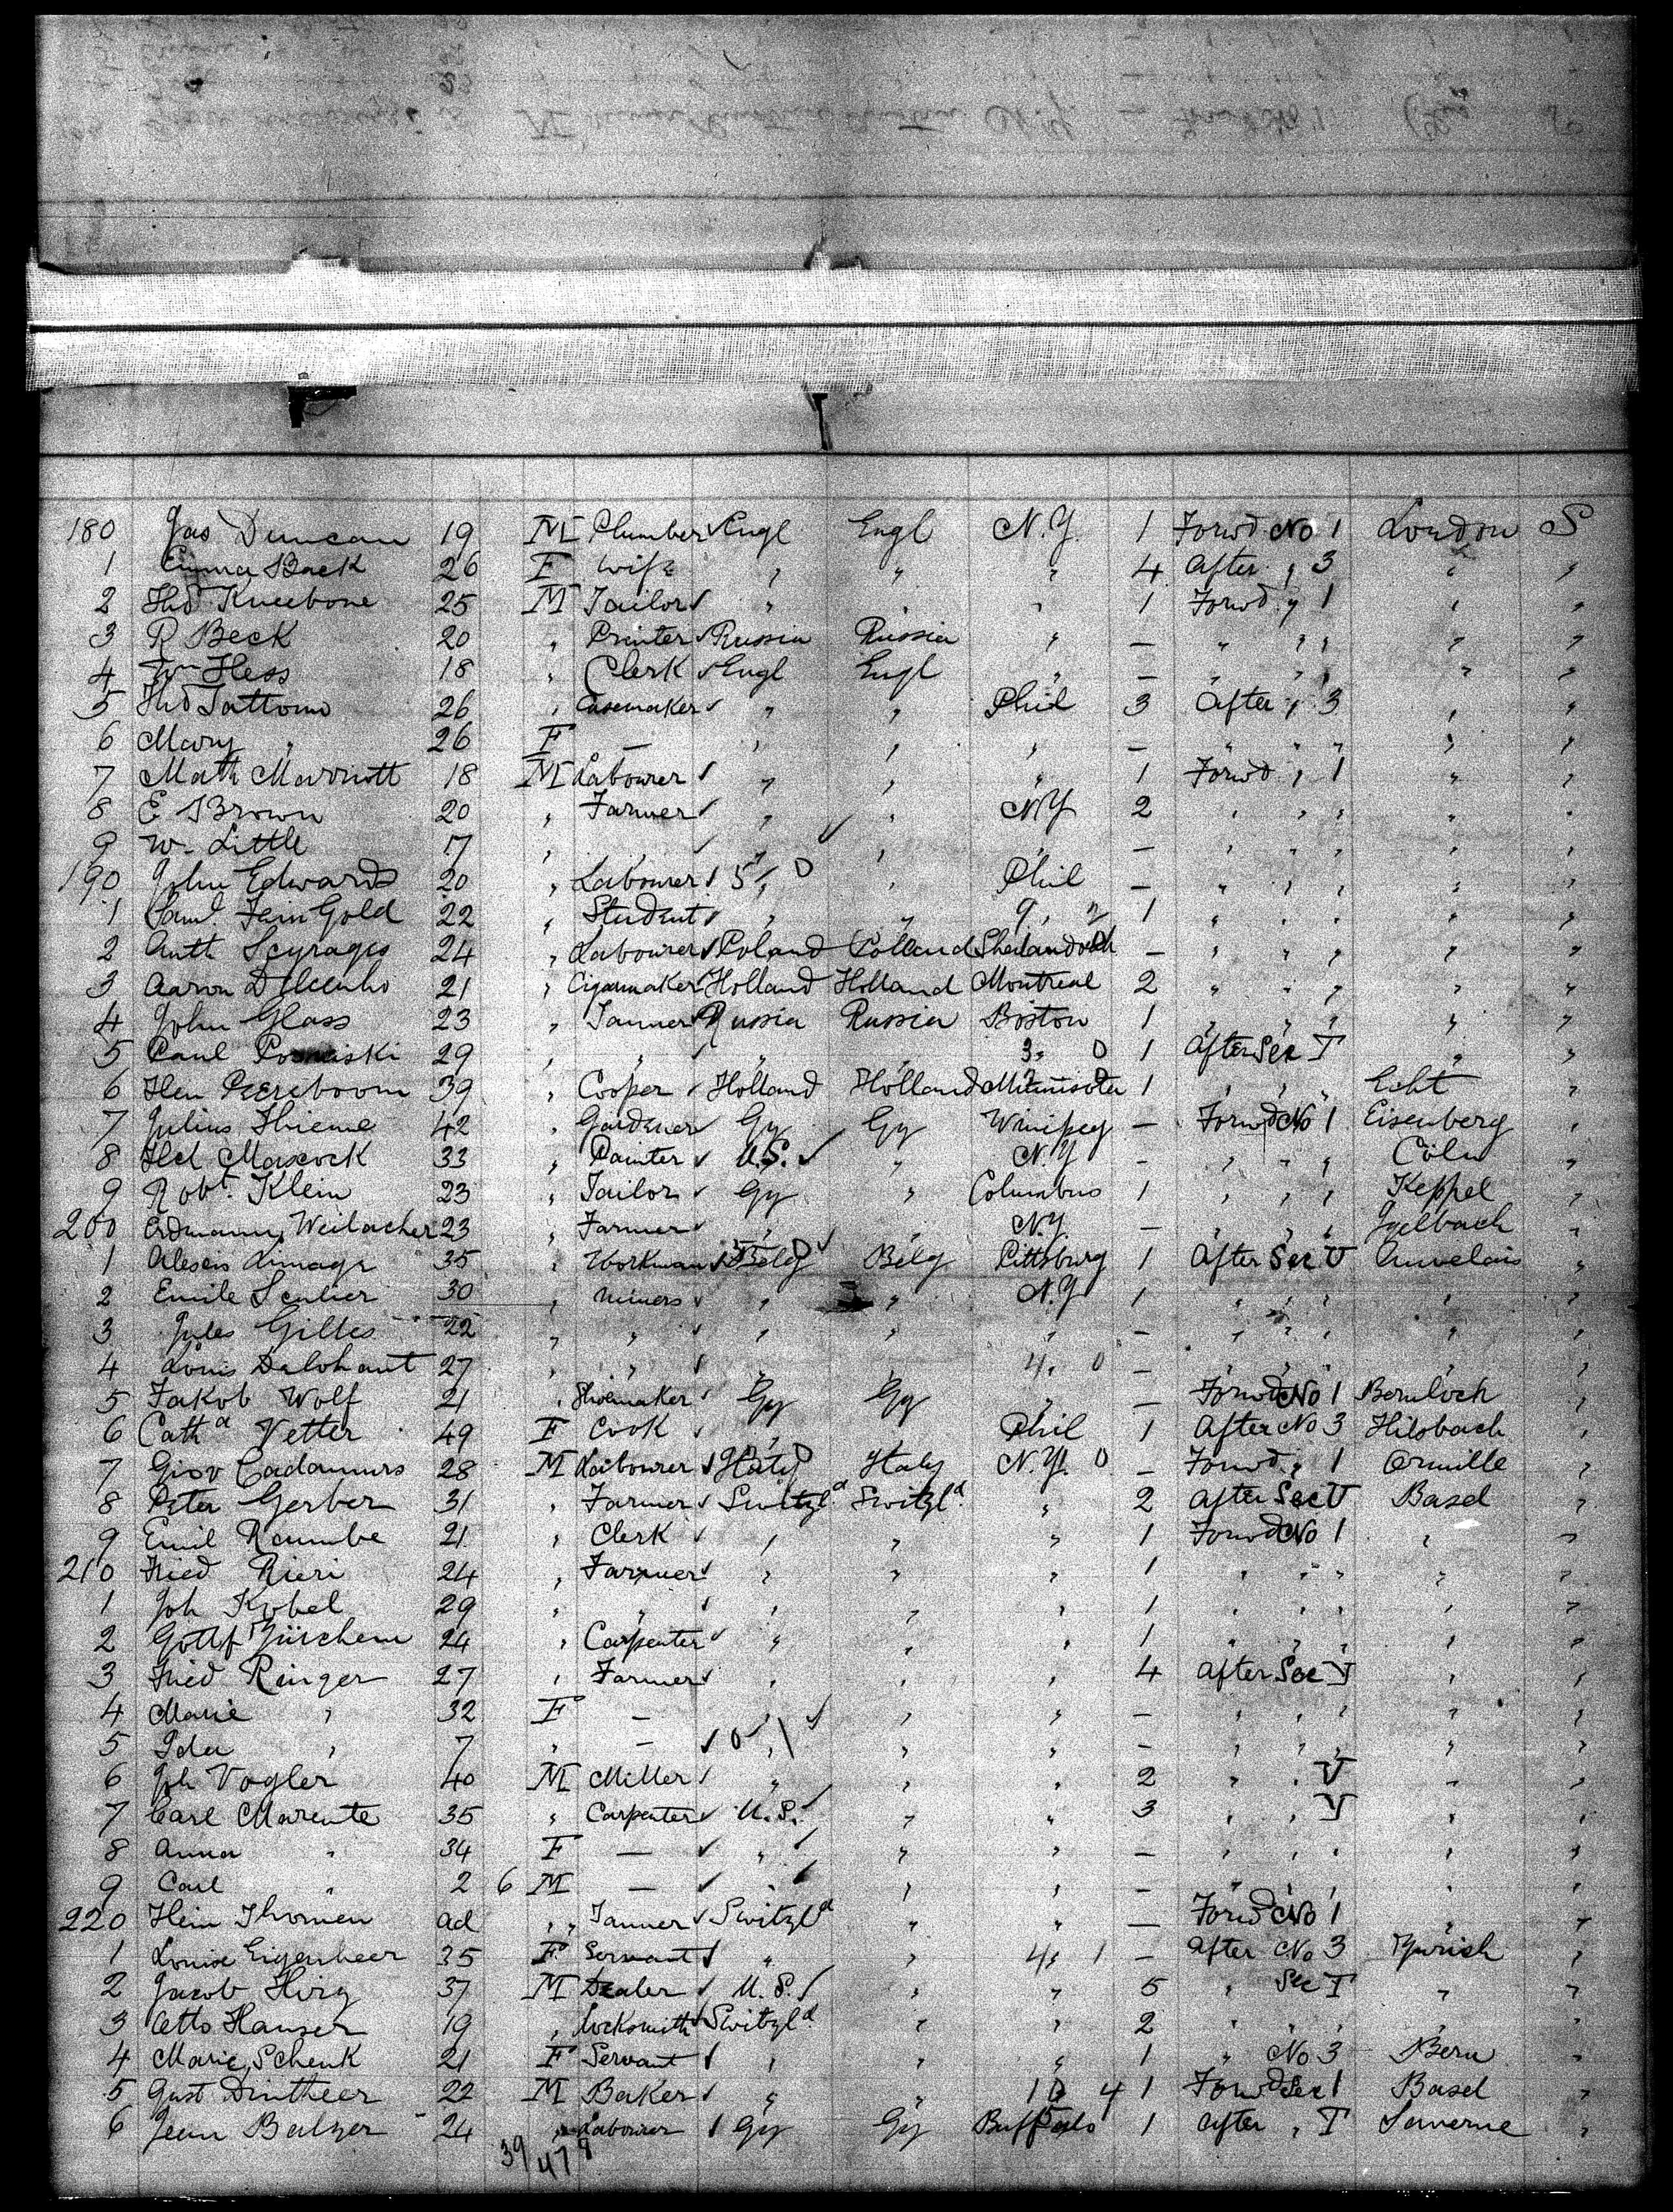 180 Jas Duncan 19 M Plumber ✓ Engl Engl N.Y. 1 Forwd No 1 London S
1 Emma Back 26 F wife " " " 4 After " 3 " "
2 Thos Kneebone 25 M Tailor ✓ " " " 1 Forwd " 1 " "
3 R Beck 20 " Printer ✓ Russia Russia " — " " " " "
4 Wm Hess 18 " Clerk ✓ Engl Engl " — " " " " "
5 Thos 26 " Casemaker ✓ " " Phil 3 After " 3 " "
6 Mary " 26 F — " " " — " " " " "
7 Math Marriott 18 M Labourer ✓ " " " 1 Forwd " 1 " "
8 E Brown 20 " Farmer ✓ " " N.Y 2 " " " " "
9 W. Little 17 " " ✓ " " " — " " " " "
190 John Edwards 20 " Labourer ✓ " " Phil — " " " " "
1 Saml FeinGold 22 " Student ✓ " " " 1 " " " " "
2 Anth 24 " Labourer ✓ Poland Polland — " " " " "
3 Aaron 21 " Cigarmaker ✓ Holland Holland Montreal 2 " " " " "
4 John Glass 23 " Tanner ✓ Russia Russia Boston 1 " " " " "
5 Paul 29 " " " " " 1 After Sec T " "
6 Hen Peereboom 39 " Cooper ✓ Holland Holland Minnisota 1 " " " Echt "
7 Julius Thieme 42 " Gardener ✓ Gy Gy Winipeg — Forwd No 1 Eisenberg "
8 Hch Mascock 33 " Painter ✓ U.S. ✓ " N.Y — " " " Cöln "
9 Robt. Klein 23 " Tailor ✓ Gy " Columbus 1 " " " Keppel "
200 Erdmann Weilacher 23 " Farmer ✓ " " N.Y. — " " " "
1 Alexis 35 " Workman ✓ Belg Belg Pittsburg 1 After Sec V Auvelais "
2 Emile 30 " miners ✓ " " N.Y 1 " " " " "
3 Jules Gilles 22 " " ✓ " " " — " " " " "
4 Louis 27 " " ✓ " " " — " " " " "
5 Jakob Wolf 21 " Shoemaker ✓ Gy Gy " — Forwd No 1 Bernloch "
6 Catha Vetter 49 F Cook ✓ " " Phil 1 After No 3 Hilsbach "
7 Giov 28 M Labourer ✓ Italy Italy N.Y. — Forwd " 1 "
8 Peter Gerber 31 " Farmer ✓ Switzld Switzld " 2 After Sec V Basel "
9 Emil 21 " Clerk ✓ " " " 1 Forwd No 1 " "
210 Fried Rieri 24 " Farmer ✓ " " " 1 " " " " "
1 Joh Kobel 29 " " ✓ " " " 1 " " " " "
2 Gottf 24 " Carpenter ✓ " " " 1 " " " " "
3 Fried Ringer 27 " Farmer ✓ " " " 4 After Sec T " "
4 Marie " 32 F — " " " — " " " " "
5 Ida " 7 " — ✓ " " " — " " " " "
6 Joh Vogler 40 M Miller ✓ " " " 2 " " V " "
7 Carl 35 " Carpenter ✓ U.S. ✓ " " 3 " " " "
8 Anna " 34 F — ✓ " " " — " " " " "
9 Carl " 2 6 M — ✓ " " " — " " " " "
220 Hein Thomen ad " Tanner ✓ Switzld " " — Forwd No 1 " "
1 Louise Eigenheer 35 F Servant ✓ " " " — After No 3 Zürich "
2 Jacob 37 M Dealer ✓ U.S. ✓ " " 5 " Sec T " "
3 Otto Hauser 19 " Locksmith ✓ Switzld " " 2 " " " " "
4 Marie Schenk 21 F Servant ✓ " " " 1 " No 3 Bern "
5 Gust Dintheer 22 M Baker ✓ " " 1 Forwd Sec 1 Basel "
6 Jean Balzer 24 " Labourer ✓ Gy Gy Buffalo 1 After " T Saverne "
39 47